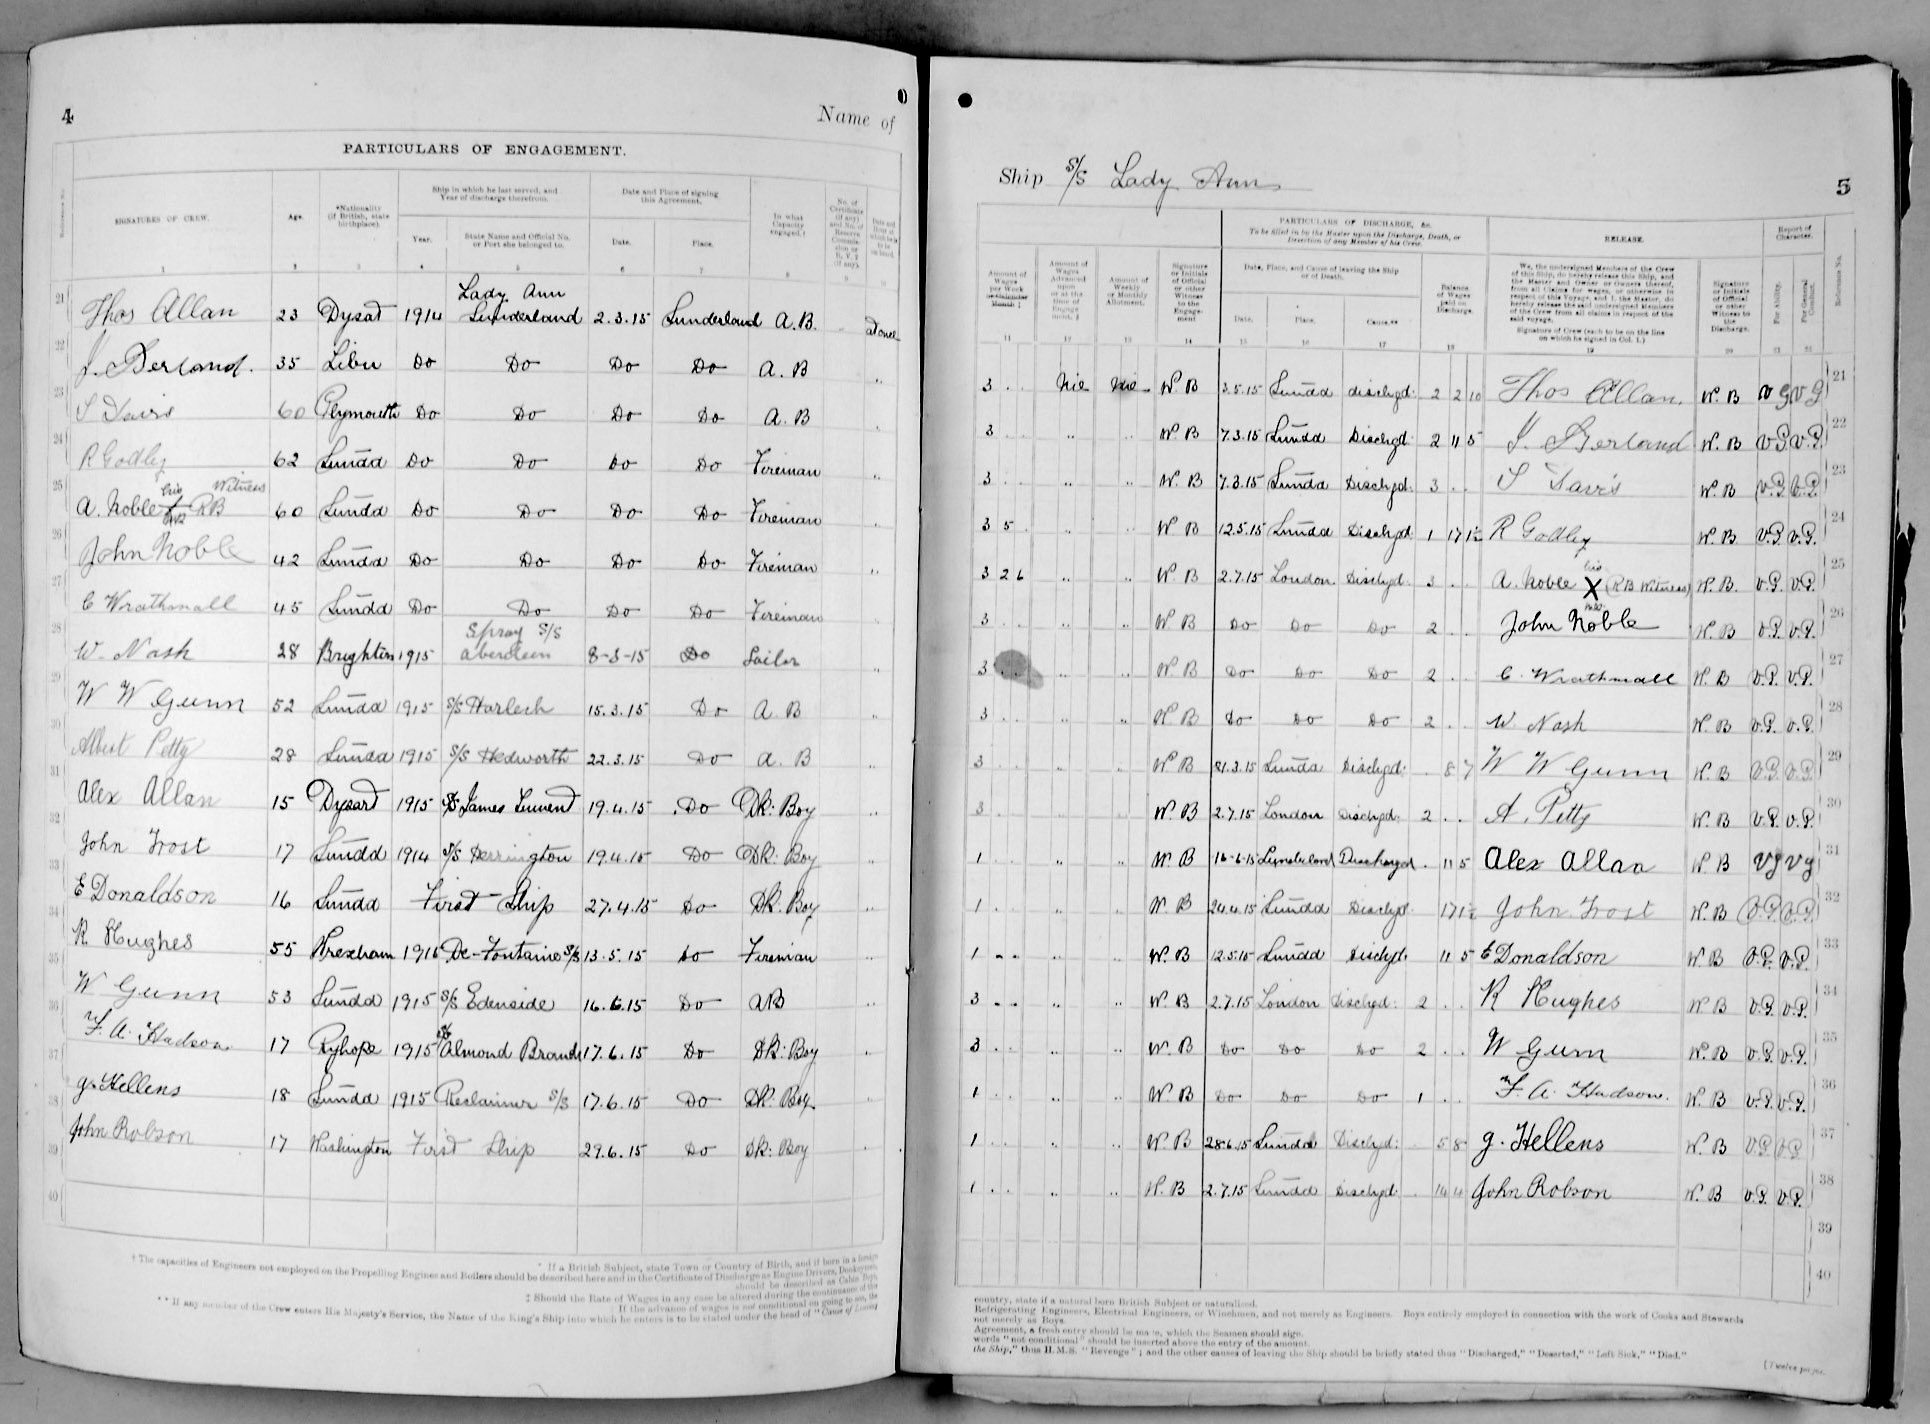 4
Name of
PARTICULARS OF ENGAGEMENT.
SIGNATURES OF CREW.
Age.
*Nationality (if British, state birthplace).
Ship in which he last served, and Year of discharge therefrom.
Year.
State Name and Official No. or Port she belonged to.
Date and Place of signing this Agreement.
Date.
Place.
In what Capacity engaged.†
1 2 3 4 5 6 7 8 9 10
21 Thos Allan 23 Dysat 1914 Lady Ann Sunderland 2.3.15 Sunderland A.B. at once
22 J. Berland. 35 Libu Do Do Do Do A.B ..
23 S Davis 60 Plymouth Do Do Do Do A.B
24 R Godley 62 Sundd Do Do Do Do Fireman ..
25 A. Noble his X RB Witness 60 Sundd Do Do Do Do Fireman
26 John Noble 42 Sundd Do Do Do Do Fireman ..
27 C Wrathmall 45 Sundd Do Do Do Do Fireman
28 W. Nash 28 Brighton 1915 Spray S/S Aberdeen 8-3-15 Do Sailor ..
29 W W Gunn 52 Sundd 1915 S/S Harlech 15.3.15 Do A.B ..
30 Albert Petty 28 Sundd 1915 S/S Hedworth 22.3.15 Do A.B ..
31 Alex Allan 15 Dysard 1915 S/S James 19.4.15 Do Dk: Boy ..
32 John Frost 17 Sundd 1914 S/S Herrington 19.4.15 Do Dk: Boy ..
33 E Donaldson 16 Sundd First Ship 27.4.15 Do Dk. Boy ..
34 R Hughes 55 Wrexham 1915 De-Fontaine S/S 13.5.15 Do Fireman ..
35 W Gunn 53 Sundd 1915 S/S Edenside 16.6.15 Do AB ..
36 F. A. Hudson 17 Ryhope 1915 S/S Almond Branch 17.6.15 Do Dk: Boy ..
37 g. Hellens 18 Sundd 1915 Reclaimer S/S 17.6.15 Do Dk: Boy ..
38 John Robson 17 Washington First Ship 29.6.15 Do Dk: Boy
39
40
* If a British Subject, state Town or Country of Birth, and if born in a foreign
† The capacities of Engineers not employed on the Propelling Engines and Boilers should be described here and in the Certificate of Discharge as Engine Drivers, Donkeymen,
should be described as Cabin Boys,
‡ Should the Rate of Wages in any case be altered during the continuance of the
If the advance of wages is not conditional on going to sea, the
** If any member of the Crew enters His Majesty's Service, the Name of the King's Ship into which he enters is to be stated under the head of "Cause of Leaving
Ship S/S Lady Ann
5
PARTICULARS OF DISCHARGE, &c.
To be filled in by the Master upon the Discharge, Death, or Desertion of any Member of his Crew.
RELEASE.
Report of Character.
Amount of Wages per Week or Calendar Month ‡
Amount of Wages Advanced upon or at the time of Engagement.‡
Amount of Weekly or Monthly Allotment.
Signature or Initials of Official or other Witness to the Engagement
Date, Place, and Cause of leaving the Ship or of Death.
Date.
Place.
Cause.**
Balance of Wages paid on Discharge.
We, the undersigned Members of the Crew of this Ship, do hereby release this Ship, and the Master and Owner or Owners thereof, from all Claims for wages, or otherwise in respect of this Voyage, and I, the Master, do hereby release the said undersigned Members of the Crew from all claims in respect of the said voyage.
Signature of Crew (each to be on the line on which he signed in Col. 1.)
Signature or Initials of Official or other Witness to the Discharge.
For Ability.
For General Conduct.
Reference No.
11 12 13 14 15 16 17 18 19 20 21
3 . . Nil Nil W. B 3.5.15 Sundd dischgd: 2 2 10 Thos Allan. W. B V G V G 21
3 . . .. W B 7.3.15 Sundd Dischgd: 2 11 5 J. Berland W. B V.G V.G. 22
3 . . .. .. W. B 7.3.15 Sundd Dischgd: 3 . . S Davis W. B V.G. V.G. 23
3 5 . .. .. W B 12.5.15 Sundd Dischgd 1 17 1½ R Godley W. B V.G. V.G. 24
3 2 6 .. .. W B 2.7.15 London Dischgd: 3 . . A. Noble his X (RB Witness) W. B. V.G. V.G. 25
3 . . .. .. W B Do Do Do 2 . . John Noble W. B V.G. V.G. 26
3 . . .. .. W B Do Do Do 2 . . C. Wrathmall W. B V.G. V.G. 27
3 . . .. .. W B Do Do Do 2 . . W Nash W B V.G. V.G. 28
3 . . .. .. W B 31.3.15 Sundd Dischgd: . 8 7 W W Gunn W B V.G. V.G. 29
3 . . .. .. W B 2.7.15 London Dischgd: 2 . . A. Petty W. B V.G. V.G. 30
1 . . .. .. W. B 16-6-15 Sunderland Discharged . 11 5 Alex Allan W B Vg Vg 31
1 . . .. .. W. B 24.4.15 Sundd Dischgd . 17 1½ John Frost W. B V.G. V.G. 32
1 . . .. .. W. B 12.5.15 Sundd Dischgd. 11 5 E Donaldson W B V.G. V.G. 33
3 . . .. .. W. B 2.7.15 London Dischgd: 2 . . R Hughes W B V.G. V.G. 34
3 . . .. .. W. B Do Do Do 2 . . W Gunn W. B V.G. V.G. 35
1 . . .. .. W. B Do Do Do 1 . . F. A. Hudson. W. B V.G. V.G. 36
1 . . .. .. W. B 28.6.15 Sundd Dischgd: . 5 8 g. Hellens W. B V.G. V.G. 37
1 . . .. .. W. B 2.7.15 Sundd Dischgd: . 14 4 John Robson W. B V.G. V.G. 38
39
40
country, state if a natural born British Subject or naturalised.
Refrigerating Engineers, Electrical Engineers, or Winchmen, and not merely as Engineers. Boys entirely employed in connection with the work of Cooks and Stewards
not merely as Boys.
Agreement, a fresh entry should be made, which the Seamen should sign.
words "not conditional" should be inserted above the entry of the amount.
the Ship," thus H.M.S. "Revenge"; and the other causes of leaving the Ship should be briefly stated thus "Discharged," "Deserted," "Left Sick," "Died."
[Twelve pages.